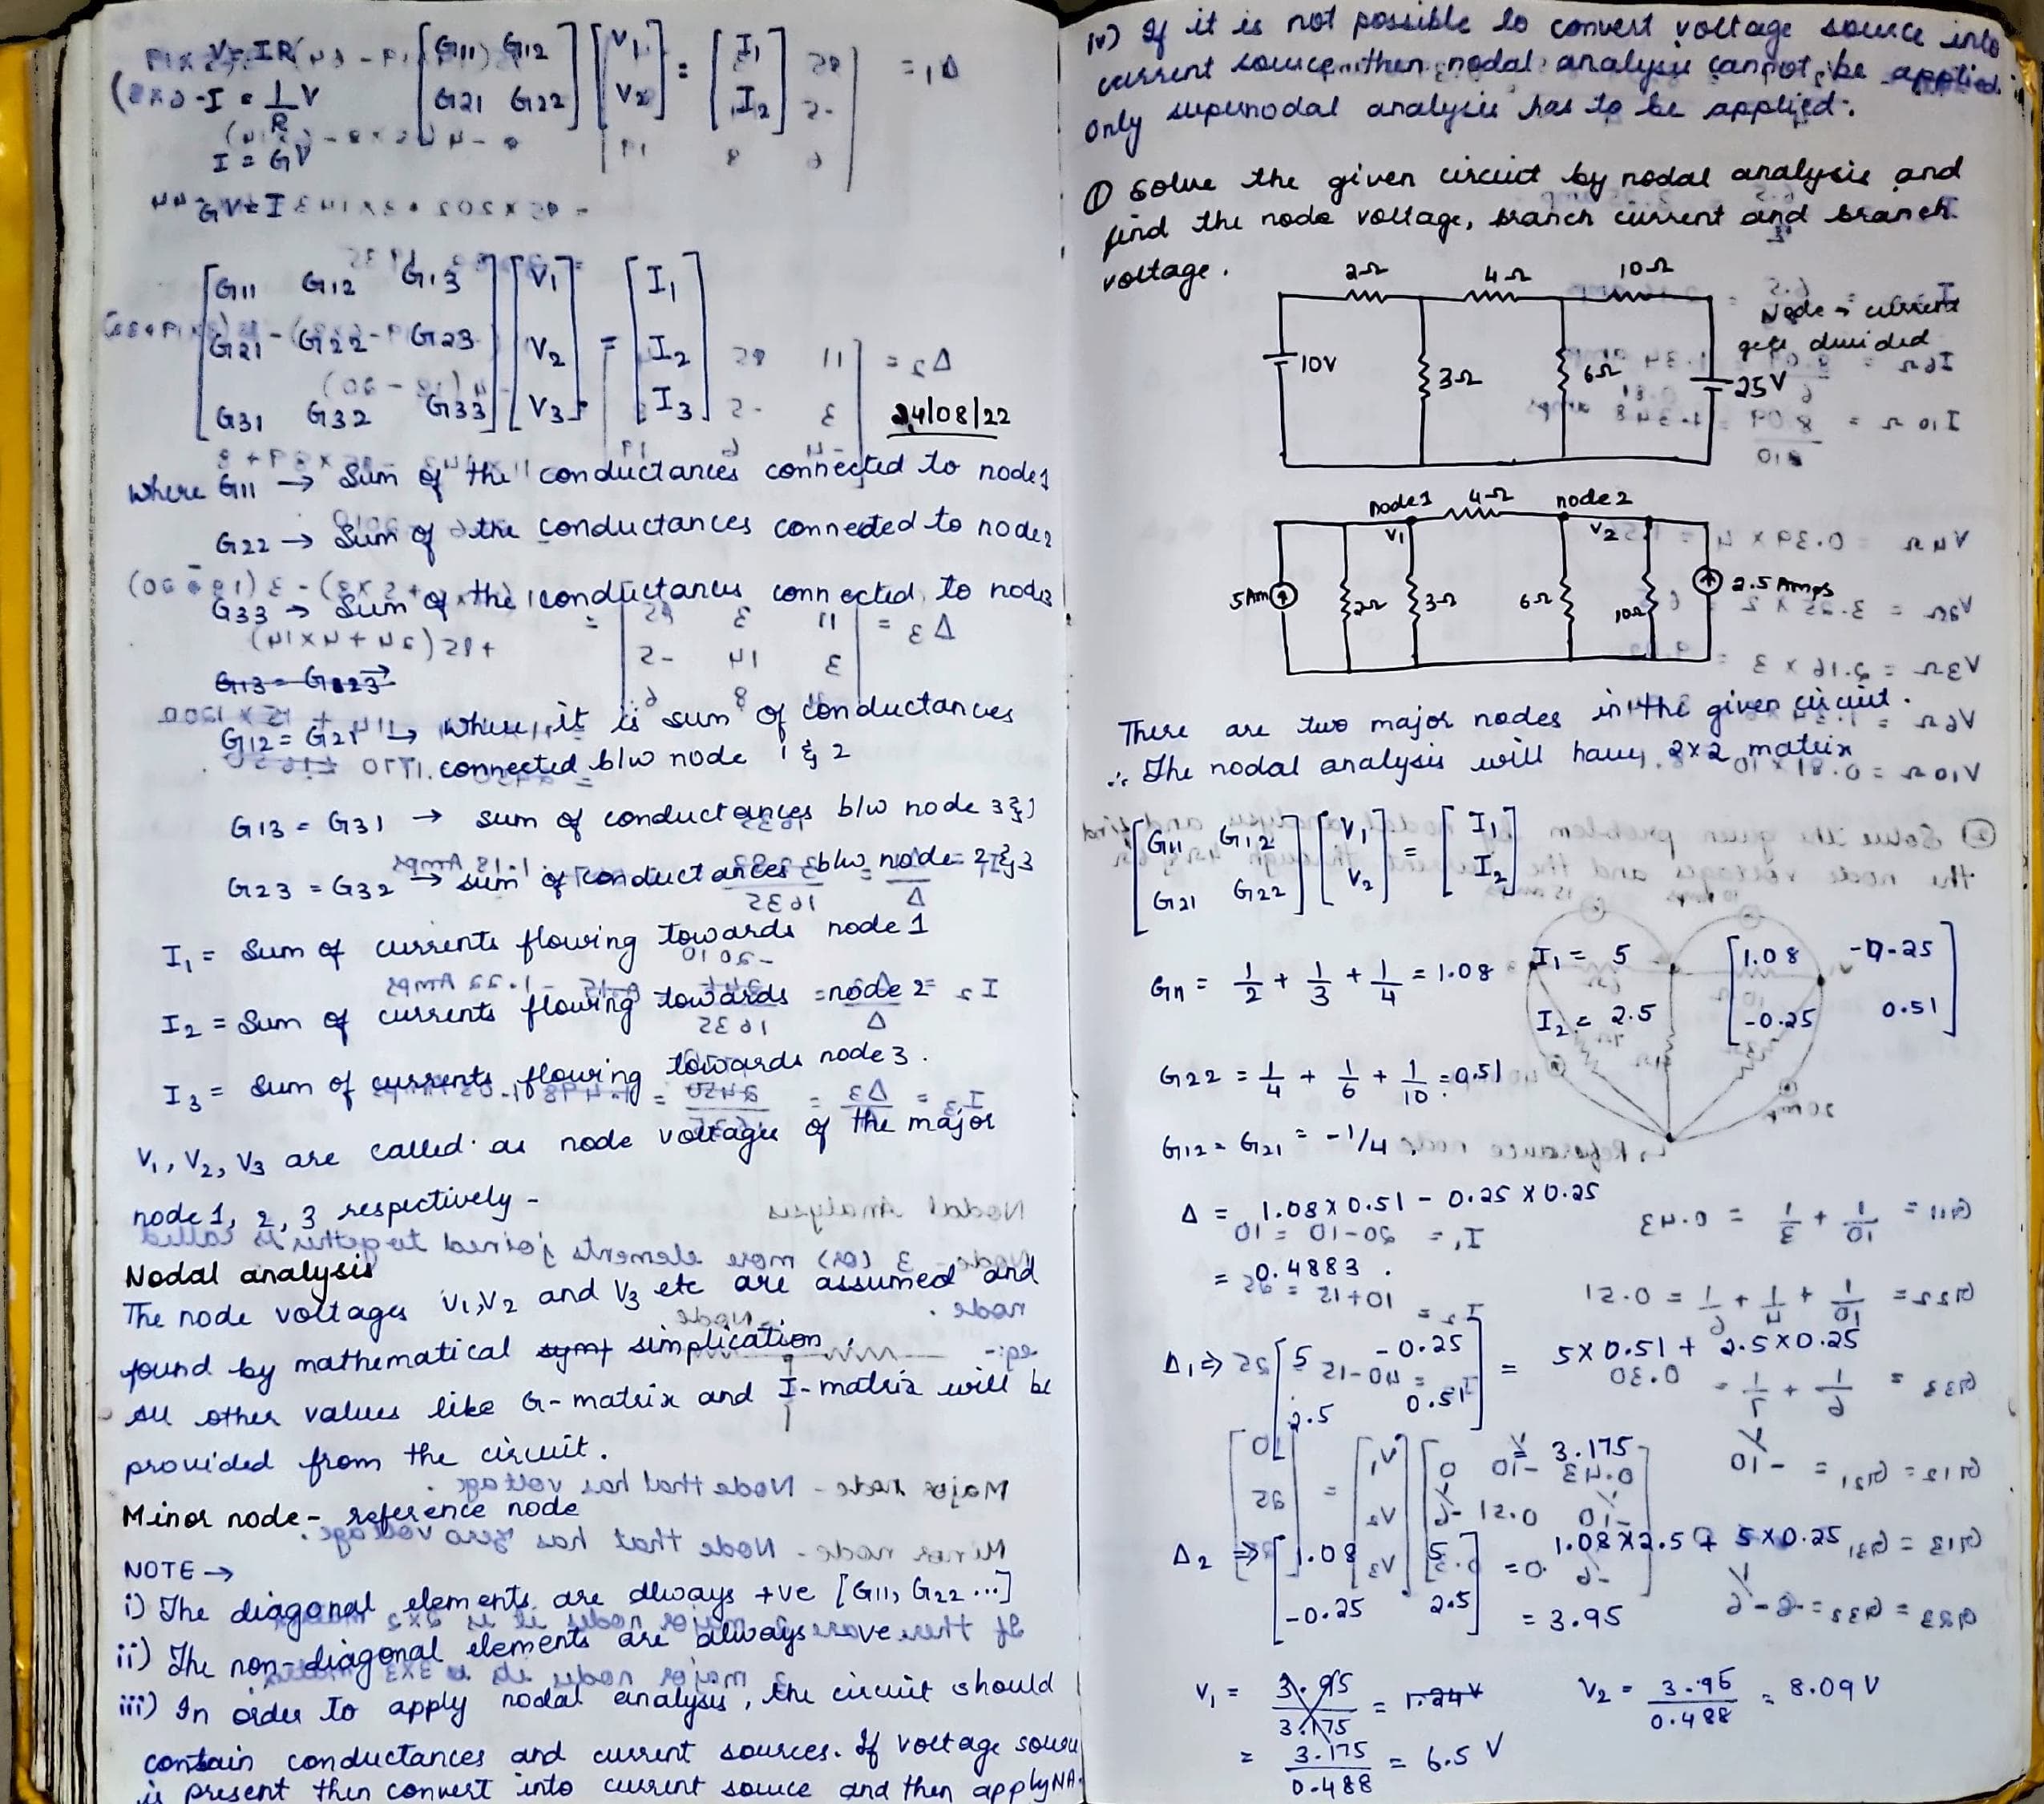 V = IR
I = 1/R V
I = GV
GV = I
[G11 G12 G21 G22] [V1 V2] = [I1 I2]
[G11 G12 G13 G21 G22 G23 G31 G32 G33] [V1 V2 V3] = [I1 I2 I3]
24/08/22
Where G11 → Sum of the conductances connected to node1
G22 → Sum of the conductances connected to node2
G33 → Sum of the conductances connected to node3
G12 = G21 → where it is sum of conductances
connected b/w node 1 & 2
G13 = G31 → sum of conductances b/w node 3 & 1
G23 = G32 → sum of conductances b/w node 2 & 3
I1 = Sum of currents flowing towards node 1
I2 = Sum of currents flowing towards node 2
I3 = Sum of currents flowing towards node 3.
V1, V2, V3 are called as node voltages of the major
node 1, 2, 3 respectively -
Nodal analysis
The node voltages V1, V2 and V3 etc are assumed and
found by mathematical simplication.
All other values like G-matrix and I-matrix will be
provided from the circuit.
Minor node - reference node
NOTE →
i) The diagonal elements are always +ve [G11, G22 ...]
ii) The non-diagonal elements are always -ve
iii) In order to apply nodal analysis, the circuit should
contain conductances and current sources. If voltage source
is present then convert into current source and then apply NA.
iv) If it is not possible to convert voltage source into
current source then nodal analysis cannot be applied
only supernodal analysis has to be applied.
① Solve the given circuit by nodal analysis and
find the node voltage, branch current and branch
voltage.
2Ω 4Ω 10Ω
Node → current
gets divided
10V 3Ω 6Ω 25V
node1 4Ω node2
V1 V2
5Am 2Ω 3Ω 6Ω 10Ω 2.5 Amps
There are two major nodes in the given circuit.
∴ The nodal analysis will have 2x2 matrix
[G11 G12 G21 G22] [V1 V2] = [I1 I2]
G11 = 1/2 + 1/3 + 1/4 = 1.08 I1 = 5 [1.08 -0.25
I2 = 2.5 -0.25 0.51]
G22 = 1/4 + 1/6 + 1/10 = 0.51
G12 = G21 = -1/4
Δ = 1.08 x 0.51 - 0.25 x 0.25
= 0.4883.
Δ1 ⇒ [5 -0.25 2.5 0.51] = 5 x 0.51 + 2.5 x 0.25
= 3.175
Δ2 ⇒ [1.08 5 -0.25 2.5] = 1.08 x 2.5 + 5 x 0.25
= 3.95
V1 = 3.95/3.175 = 1.24V V2 = 3.95/0.488 = 8.09 V
= 3.175/0.488 = 6.5 V